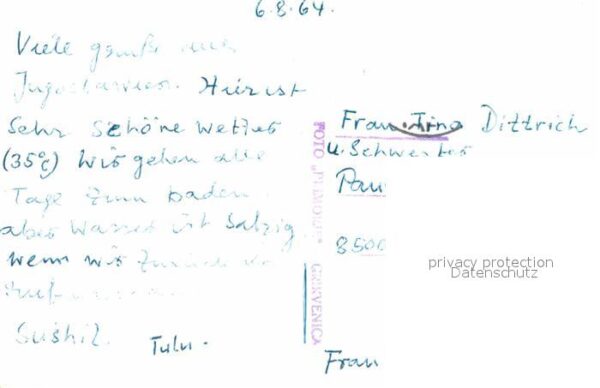 6.8.64.
Viele
Jugoslawien. Hier ist
Sehr Schöne Wetter
(35°C) Wir gehen alle
Tage zum baden.
aber Wasser ist Salzig.
wenn wir zurück
Sushil. Tulu.
FOTO CRIKVENICA
Frau Dittrich
u. Schwester
8500
Frau
privacy protection
Datenschutz